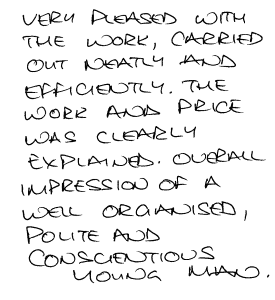 VERY PLEASED WITH
THE WORK, CARRIED
OUT NEATLY AND
EFFICIENTLY. THE
WORK AND PRICE
WAS CLEARLY
EXPLAINED. OVERALL
IMPRESSION OF A
WELL ORGANISED,
POLITE AND
CONSCIENTIOUS
YOUNG MAN.